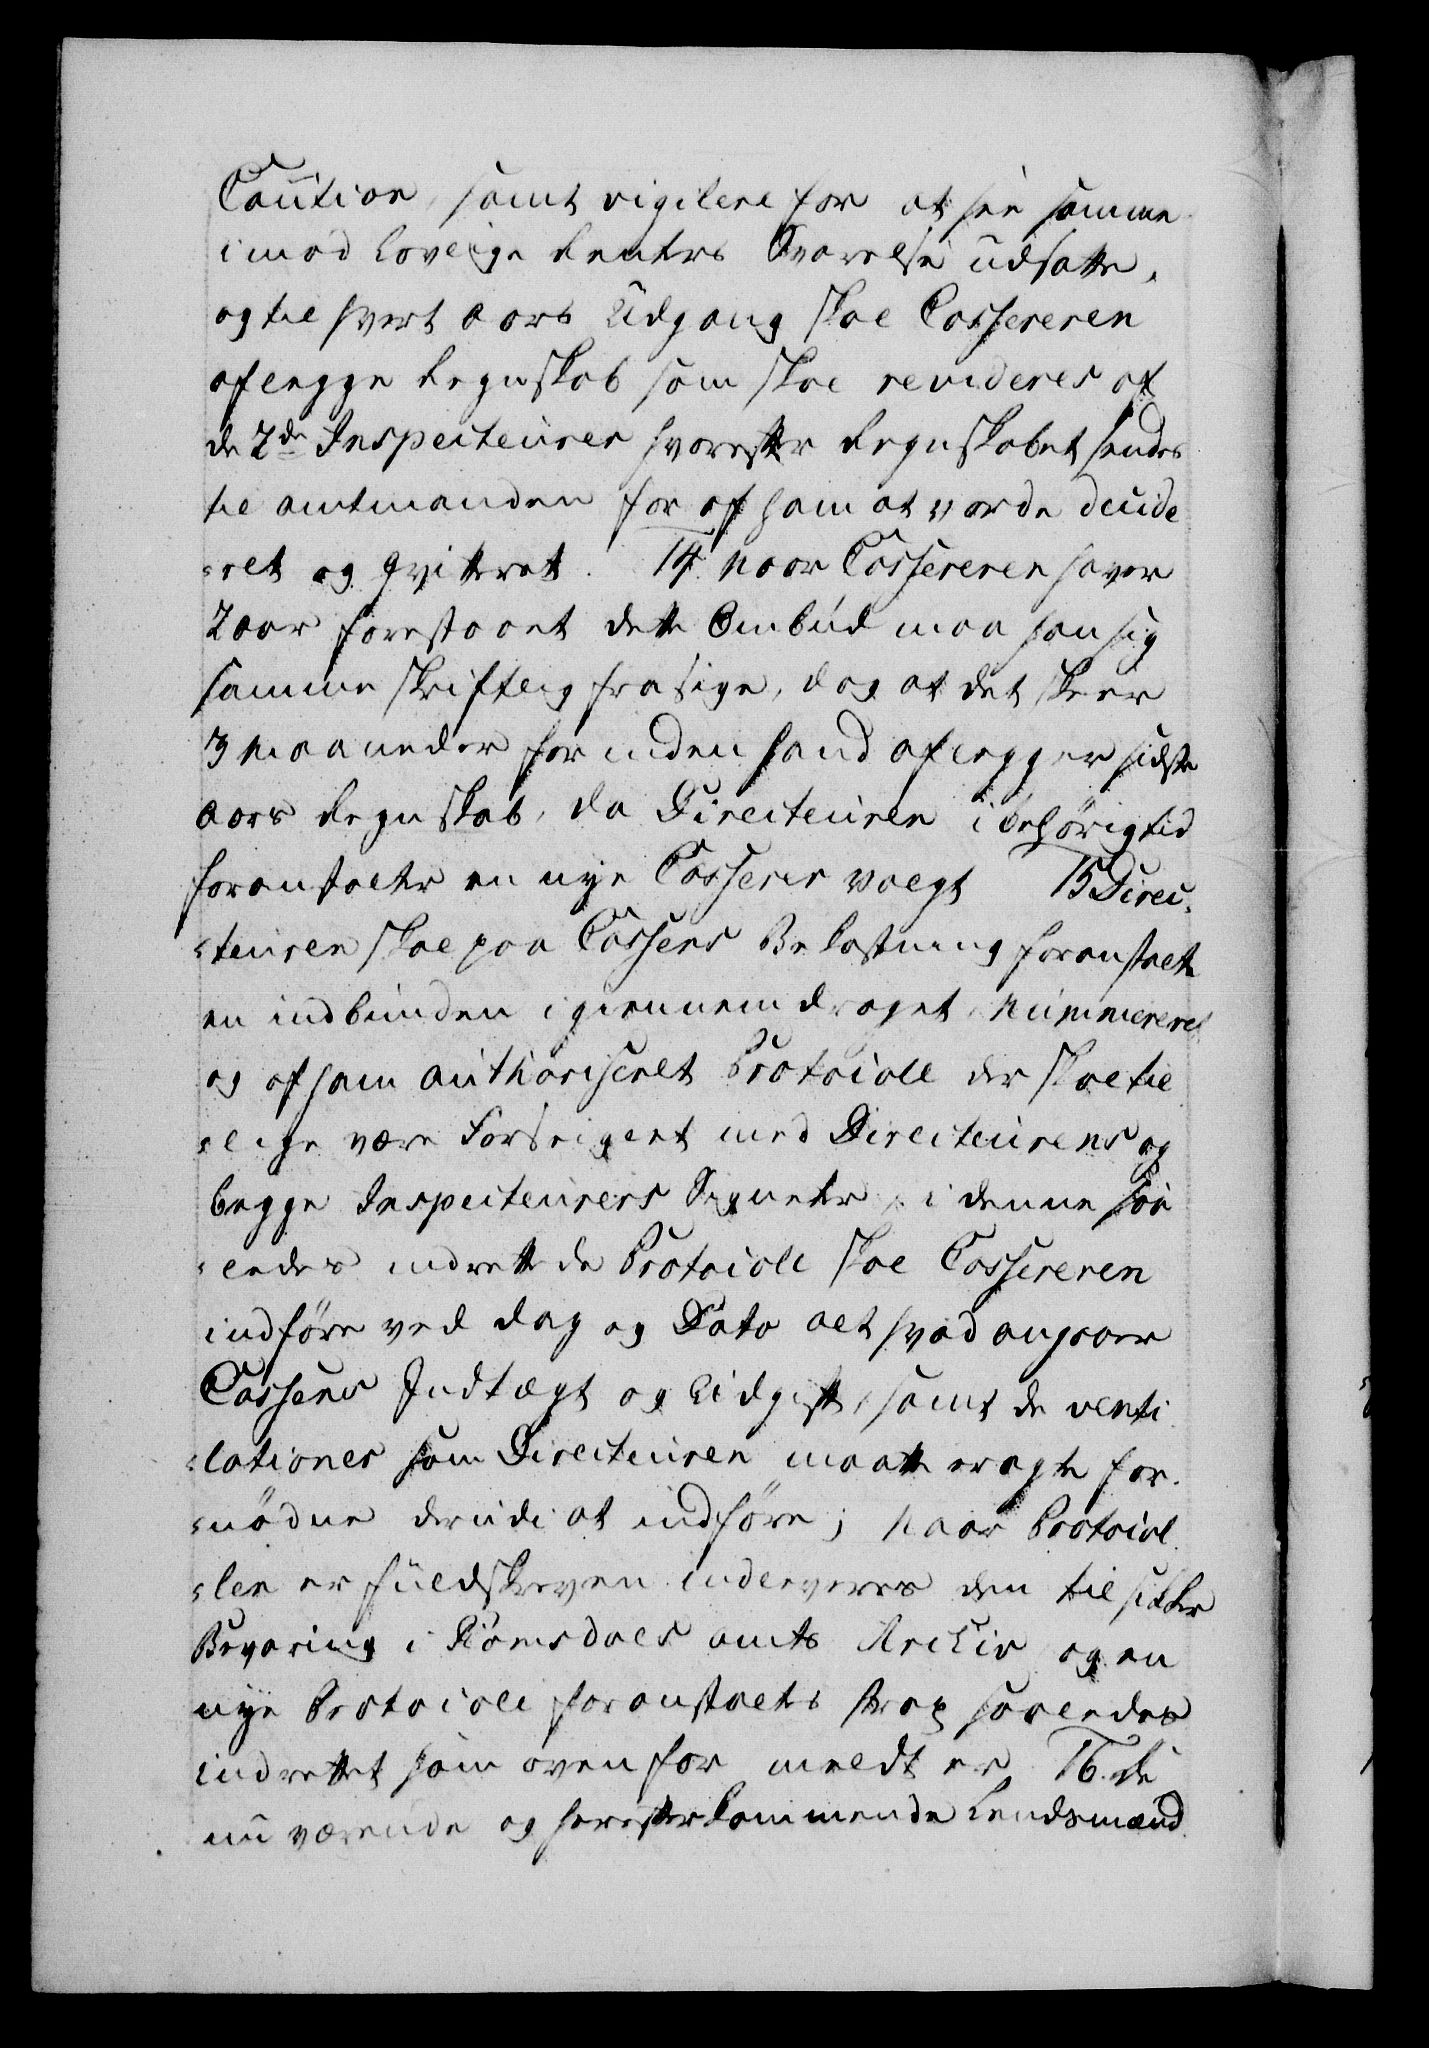 Caution, samt vigilere for at see samme
imod lovlige Renters Svarelse udsatte,
og til hvert aars Udgang skal Cassereren
aflegge Regnskab som skal revideres af
de 2de Inspecteurer hvorefter Regnskabet sendes
til amtmanden for af ham at vorde decide
-ret og qvitteret. 14. naar Cassereren haver
2 aar forestaaet dette Ombud maa han sig
samme skriftlig frasige, dog at det skeer
3 maaneder for inden hand aflegger sidste
aars Regnskab, da Directeuren i behörig tid
foranstalter en nye Casserer valgt 15 Direc-
-teuren skal paa Cassens Bekostning foranstalte
en indbunden igiennemdraget, nummereret
og af ham authoriseret Protocoll der skal til
-lige være forseiglet med Directeurens og
begge Inspecteurers Signeter, i denne saa
-ledes indrettede Protocoll skal Cassereren
indföre ved dag og Dato alt hvad angaaer
Cassens Indtægt og Udgift, samt de venti
-lationer som Directeuren maatte eragte for-
-nödne derudi at indföre; naar Protocol
-len er fuldskreven indleveres den til sikker
Bevaring i Romsdals amts Archiv og en
nye Protocoll foranstaltes strax saaledes
indrettet som ovenfor meldt er 16. de
nu værende og herefterkommende Lendsmænd